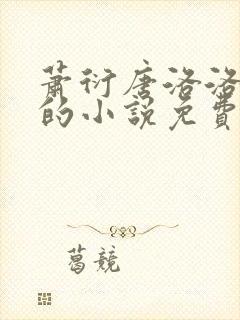 萧衍唐洛洛
的小説免費
葛競